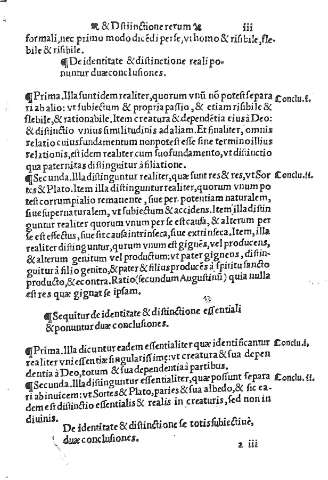 & Distinctione rerum iii
formali, nec primo modo dicēdi per se, vt homo & risibile, fle-
bile & risibile.
¶ De identitate & distinctione reali po-
nuntur duæ conclusiones.
¶ Prima. Illa sunt idem realiter, quorum vnū nō potest separa Conclu. i.
ri ab alio: vt subiectum & propria passio, & etiam risibile &
flebile, & rationabile. Item creatura & dependētia eius à Deo:
& distinctio vnius similitudinis ad aliam. Et finaliter, omnis
relatio cuius fundamentum non potest esse sine termino illius
relationis, est idem realiter cum suo fundamento, vt distinctio
qua paternitas distinguitur à filatione.
¶ Secunda. Illa distinguntur realiter, quæ sunt res & res, vt Sor Conclu. ii.
tes & Plato. Item illa distinguntur realiter, quorum vnum po
test corrumpi alio remanente, siue per potentiam naturalem,
siue supernaturalem, vt subiectū & accidens. Item illa distin
guntur realiter quorum vnum per se est causa, & alterum per
se est effectus, siue sit causa intrinseca, siue extrinseca. Item, illa
realiter distinguntur, quorum vnum est gignēs, vel producens,
& alterum genitum vel productum: vt pater gignens, distin-
guitur à filio genito, & pater & filius producēs à spiritu sancto
producto, & econtra. Ratio (secundum Augustinū) quia nulla
est res quæ gignat se ipsam.
¶ Sequitur de identitate & distinctione essentiali
& ponuntur duæ conclusiones.
¶ Prima. Illa dicuntur eadem essentialiter quæ identificantur Conclu. i.
realiter vni essentiæ singularissimę: vt creatura & sua depen
dentia à Deo, totum & sua dependentia à partibus.
¶ Secunda. Illa distinguntur essentialiter, quæ possunt separa Conclu. ii.
ri ab inuicem: vt Sortes & Plato, paries & sua albedo, & sic ea-
dem est distinctio essentialis & realis in creaturis, sed non in
diuinis.
De identitate & distinctione se totis subiectiuè,
duæ conclusiones.
a iii